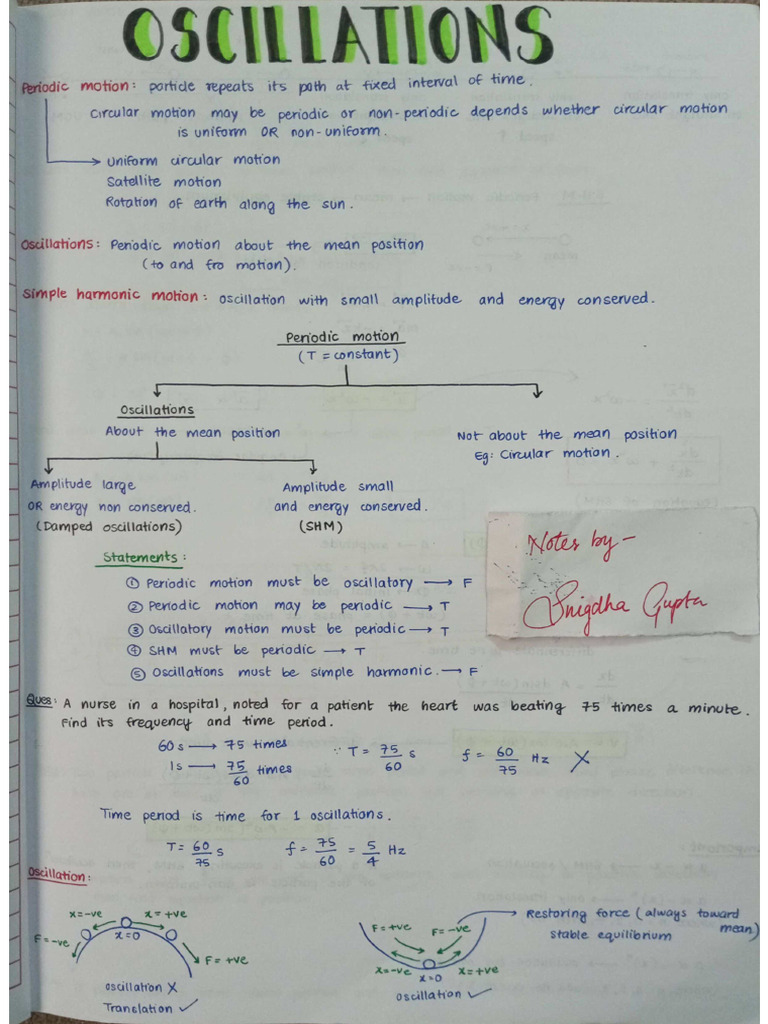 OSCILLATIONS
Periodic motion: particle repeats its path at fixed interval of time.
Circular motion may be periodic or non-periodic depends whether circular motion
is uniform OR non-uniform.
Uniform circular motion
Satellite motion
Rotation of earth along the sun.
Oscillations: Periodic motion about the mean position
(to and fro motion).
Simple harmonic motion: oscillation with small amplitude and energy conserved.
Periodic motion
(T = constant)
Oscillations
About the mean position
Not about the mean position
Eg: Circular motion.
Amplitude large
OR energy non conserved.
(Damped oscillations)
Amplitude small
and energy conserved.
(SHM)
Notes by -
Snigdha Gupta
Statements:
① Periodic motion must be oscillatory → F
② Periodic motion may be periodic → T
③ Oscillatory motion must be periodic → T
④ SHM must be periodic → T
⑤ Oscillations must be simple harmonic. → F
Ques: A nurse in a hospital, noted for a patient the heart was beating 75 times a minute.
Find its frequency and time period.
60s → 75 times
1s → 75/60 times
∵ T = 75/60 s f = 60/75 Hz X
Time period is time for 1 oscillations.
T = 60/75 s f = 75/60 = 5/4 Hz
Oscillation:
x=-ve x=+ve
x=0
F=-ve
F=+ve
oscillation X
Translation ✓
F=+ve F=-ve
x=-ve x=+ve
x=0
oscillation ✓
→ Restoring force (always toward
mean)
stable equilibrium